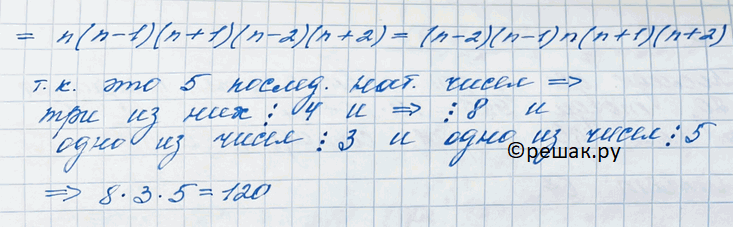 = n(n-1)(n+1)(n-2)(n+2) = (n-2)(n-1)n(n+1)(n+2)
т.к. это 5 послед. нат. чисел =>
три из них ⋮ 4 и => ⋮ 8 и
одно из чисел ⋮ 3 и одно из чисел ⋮ 5
©решак.ру
=> 8·3·5=120